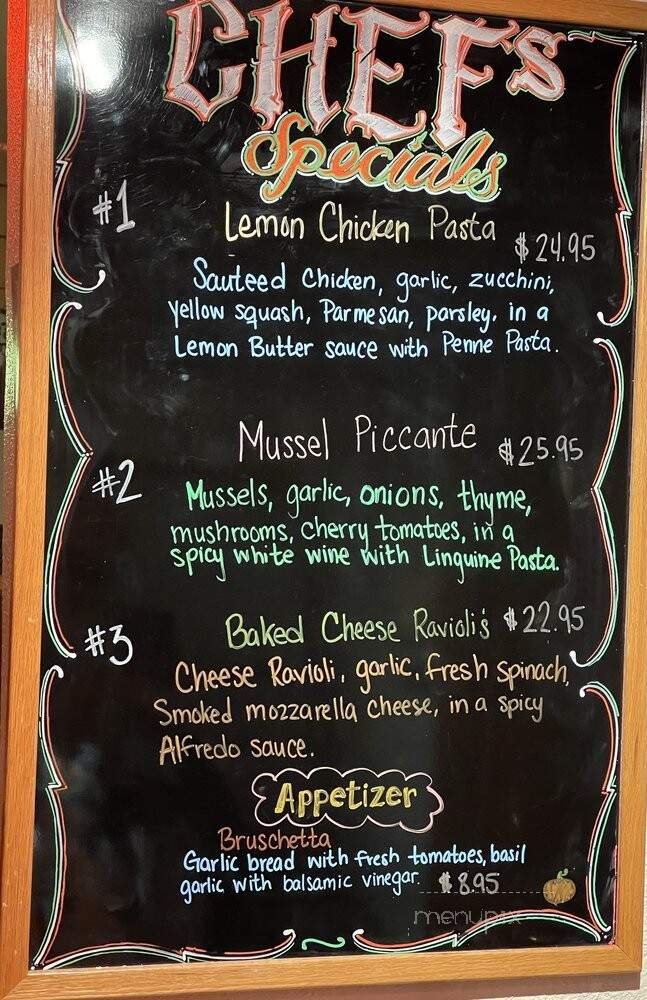 CHEF's
Specials
#1
Lemon Chicken Pasta
$24.95
Sauteed Chicken, garlic, zucchini,
yellow squash, Parmesan, parsley. in a
Lemon Butter sauce with Penne Pasta.
Mussel Piccante
$25.95
#2
Mussels, garlic, onions, thyme,
mushrooms, cherry tomatoes, in a
spicy white wine with Linguine Pasta.
Baked Cheese Ravioli's
$22.95
#3
Cheese Ravioli, garlic, fresh spinach,
Smoked mozzarella cheese, in a spicy
Alfredo sauce.
Appetizer
Bruschetta
Garlic bread with fresh tomatoes, basil
garlic with balsamic vinegar. $8.95
menupix